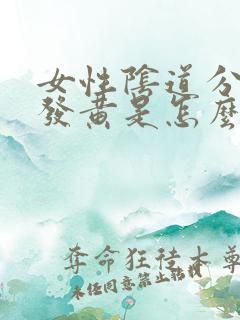 女性陰道分
發黃是怎麼
奪命狂徒本尊
未经同意禁止转载